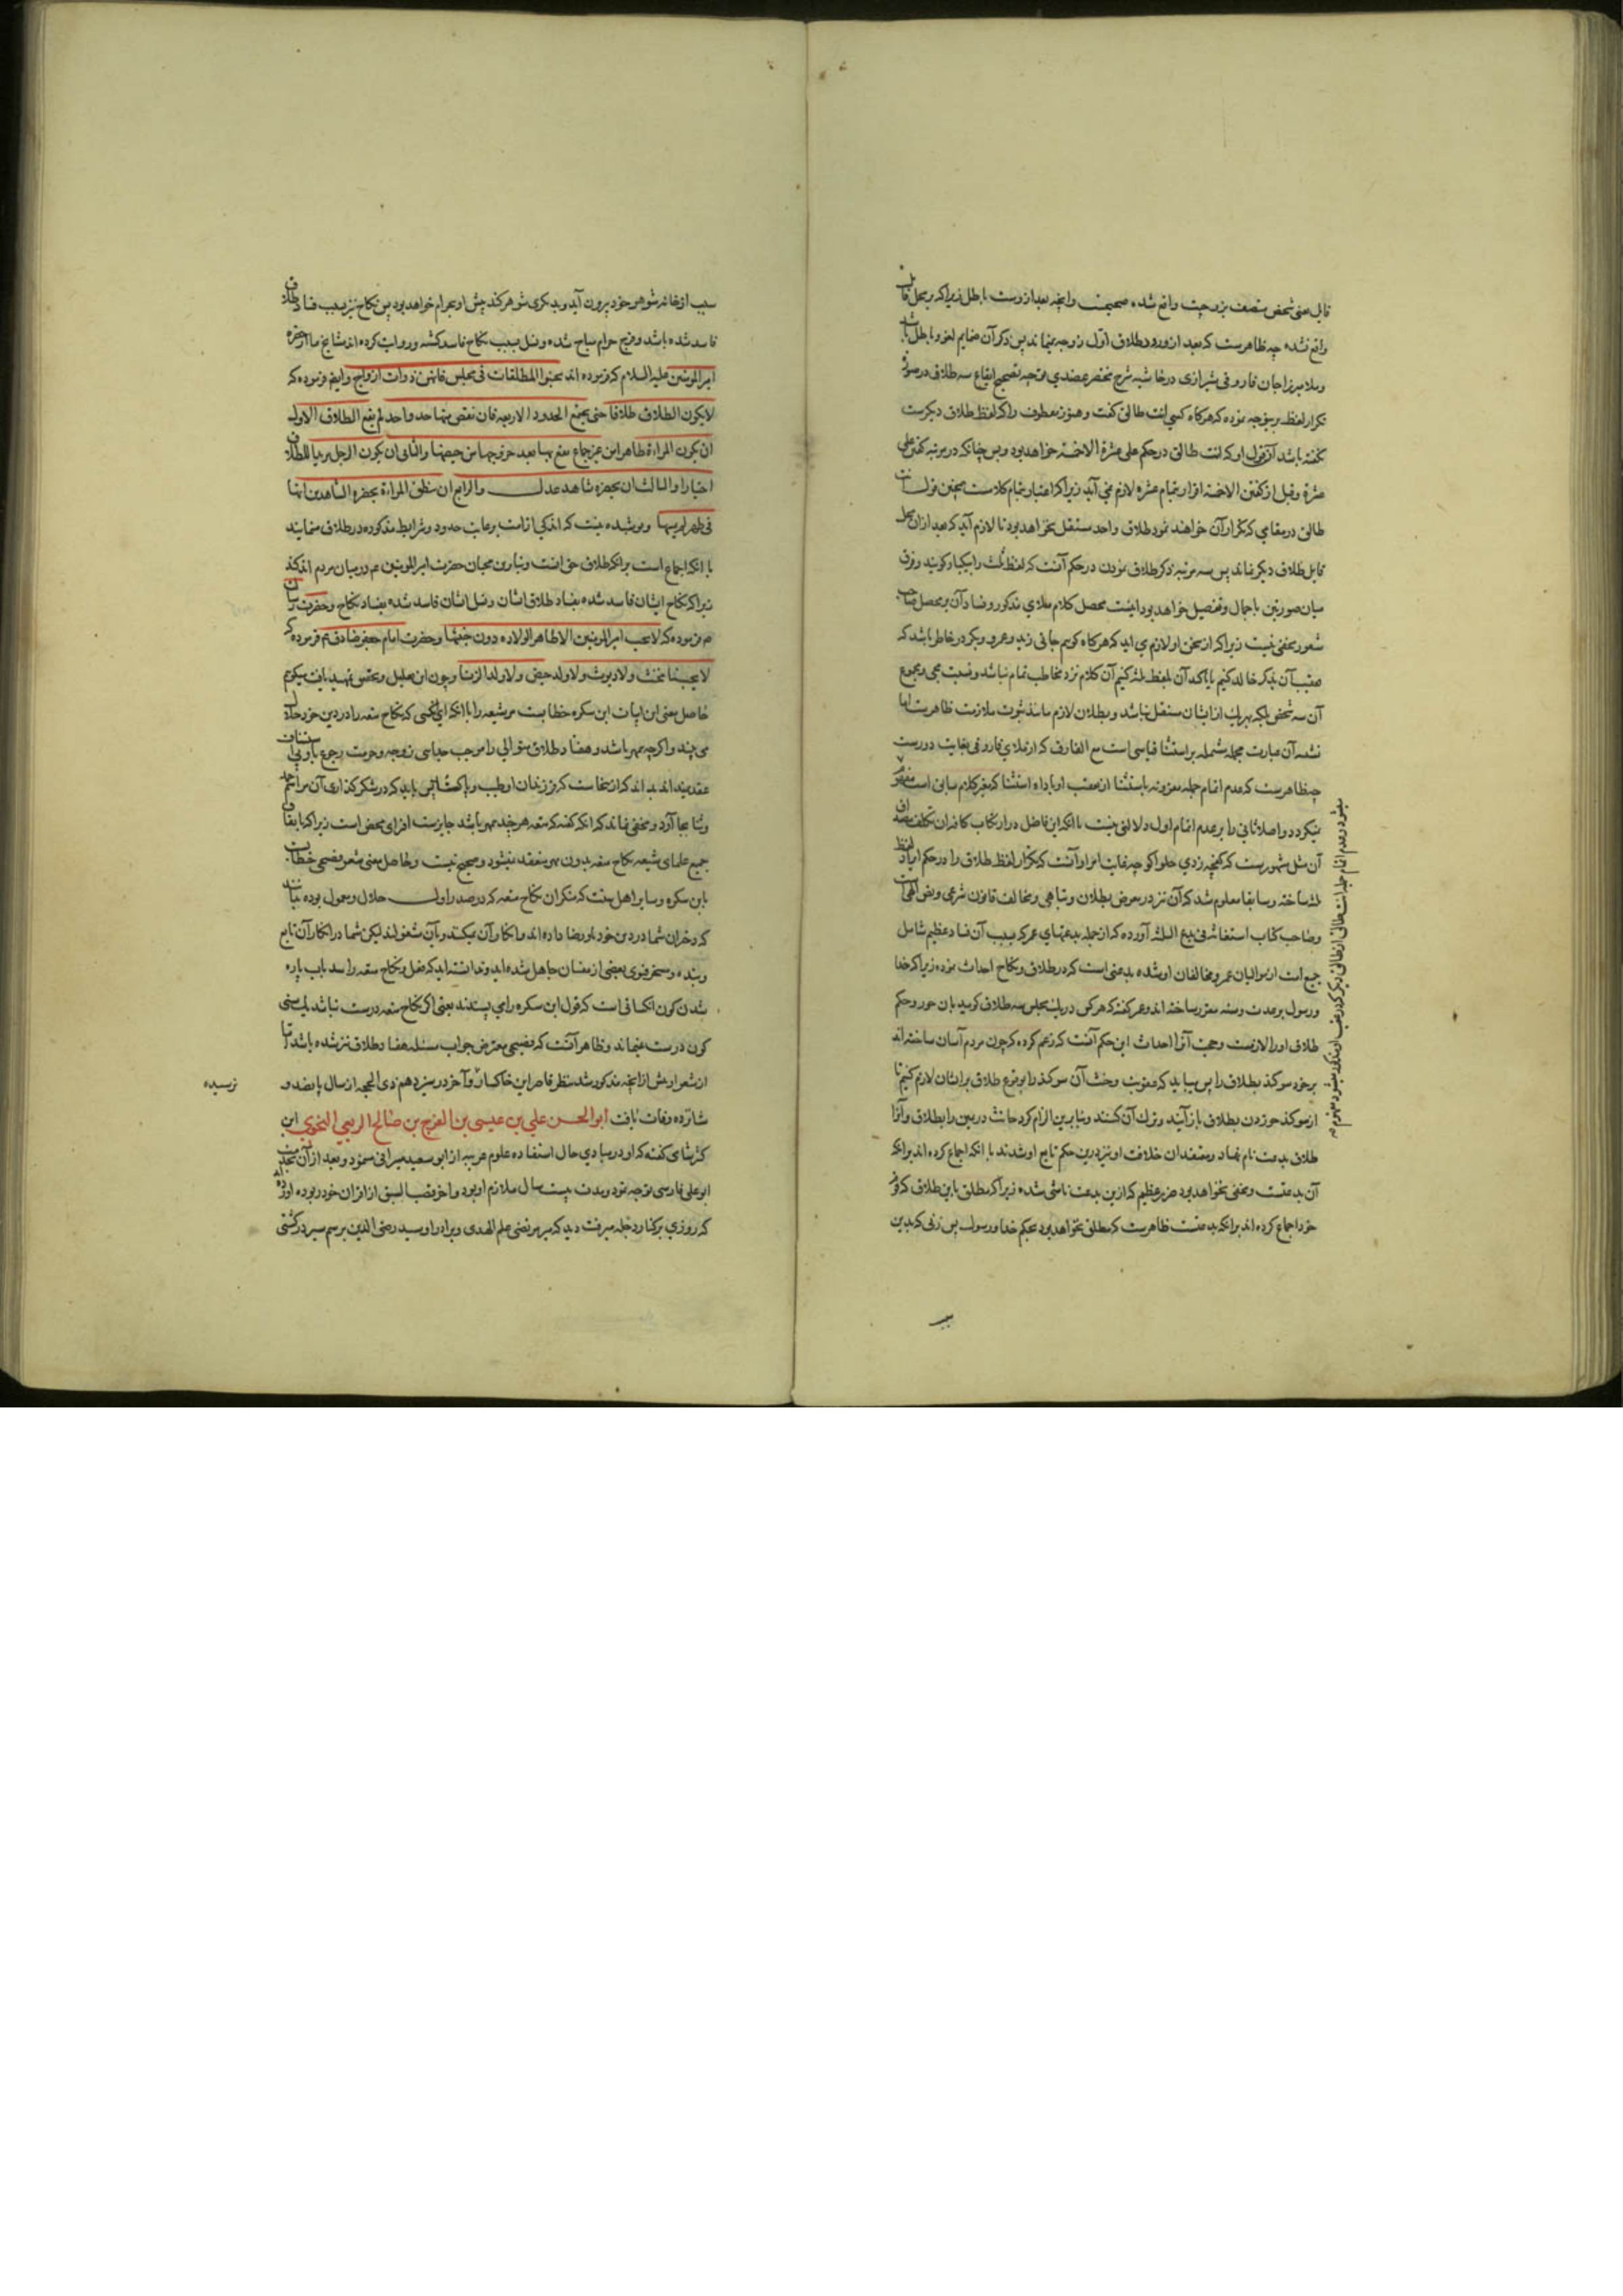 قابل یعنی شخص متصف بزوجیت واقع شده صحیحست وانچه بعد ازوست باطل زیراکه در محل قابل
واقع نشده چه ظاهرست که بعد از ورود طلاق اول زوجه نمیماند پس ذکر آن ضمایم لغو و باطل باشد
و ملا میرزاجان فاروقی شیرازی در حاشیه شرح مختصر عضدی متوجه تصحیح ایقاع سه طلاق در صورت
تکرار لفظ برینوجه نموده که هرکاه کسی انت طالق کفت و هنوز معطوف راکه لفظ طلاق دیکرست
نکفته باشد آن قول او که انت طالق در حکم علی عشرة الا خمسه خواهد بود و پس چنانکه در مرتبه کفتن علی
عشرة و قبل از کفتن الا خمسه اقرار بتمام عشره لازم نمی آید زیراکه اعتبار بتمام کلامست همچنین قول انت
طالق در مقامی که تکرار آن خواهند نمود طلاق واحد مستقل نخواهد بود تا لازم آید که بعد از ان محل
قابل طلاق دیکر نماند پس سه مرتبه ذکر طلاق نمودن در حکم آنست که لفظ ثلث را یکبار کویند و فرق
میان صورتین باجمال و تفصیل خواهد بود اینست محصل کلام ملای مذکور و فساد آن بر محصل صاحب
شعور مخفی نیست زیراکه از سخن او لازم می اید که هرکاه کوییم جائنی زید و عمرو و بکر در خاطر باشد که
عقیب آن ذکر خالد کنیم یا تاکید آن بلفظ ثلثه کنیم آن کلام نزد مخاطب تمام نباشد و نسبت مجی بمجموع
آن سه شخص بلکه بهر یک از ایشان مستقل نباشد و بطلان لازم مانند ثبوت ملازمت ظاهرست اما
تشبه آن عبارت بجمله مشتمله بر استثنا قیاسی است مع الفارق که از ملای فاروقی بغایت دورست
چه ظاهرست که عدم اتمام جمله مقرونه باستثنا از تعقب او باداه استثنا که مغیر کلام سابق است مفهوم
میکردد و اصلا ثانی را بر عدم اتمام اول دلالتی نیست باانکه این فاضل در ارتکاب کاف ان تکلف مصداق
آن مثل مشهورست که کنجه زدی حلوا کو چه غایت امر او آنست که تکرار لفظ طلاق را در حکم ایراد لفظ
ثلثه ساخته و سابقا معلوم شد که آن نیز در معرض بطلان و تباهی و مخالف قانون شرعی و نص الهی است
و صاحب کتاب استغاثه فی بدع الثلثه آورده که از جمله بدعتهای عمر که بسبب آن فساد عظیم شامل
جمیع امت از موالیان عمر و مخالفان او شده بدعتی است که در طلاق و نکاح احداث نموده زیراکه خدا
و رسول بر عدت و سنه مقرر ساخته اند و عمر کفته که هرکس در یک مجلس سه طلاق کوید بان جور و حکم
طلاق او را لازمست و حجت آنرا احداث این حکم آنست که زعم کرده که چون مردم آسان ساخته اند
بر خود سوکند بطلاق را پس بباید که عقوبت و حنث آن سوکند را بوقوع طلاق بر ایشان لازم کنیم تا
از سوکند خوردن بطلاق باز آیند و ترک آن کنند و بنابرین الزام کرد حانث در یمین را بطلاق و آنرا
طلاق بدعت نام نهاد و معتقدان خلافت او نیز درین حکم تابع او شدند باانکه اجماع کرده اند برانکه
آن بدعتست و مخفی نخواهد بود ضرر عظیم که ازین بدعت ناشی شده زیراکه مطلق باین طلاق که فرقه
خود اجماع کرده اند برانکه بدعتست ظاهرست که مطلق نخواهد بود بحکم خدا و رسول پس زنی که بدین
میشود و عدم اتمام جمله انت طالق از طالق دیکر که در عقب او مذکور میشود مفهوم
سبب از خانه شوهر خود بیرون آید و بدیکری شوهر کند پیش او بحرام خواهد بود پس نکاح نیز بسبب فساد طلاق
فاسد شده باشد و فرج حرام مباح شده و نسل بسبب نکاح فاسد کشته و روایت کرده اند مشایخ ما از حضرت
امیر المومنین علیه السلام که فرموده اند تجنبوا المطلقات فی مجلس فانهن ذوات ازواج و ایضا فرموده که
لا یکون الطلاق طلاقا حتی یجمع الحدود الاربعه فان نقص منها حد واحد لم یقع الطلاق الاول
ان یکون المراءة طاهرا من غیر جماع یقع بها بعد خروجها من حیضها والثانی ان یکون الرجل مریدا للطلاق
اختیارا والثالث ان یحضره شاهد عدل والرابع ان ینطق المراءة بحضرة الشاهدین انها
فی طهر لم یمسها و پوشیده نیست که اندکی از امت برعایت حدود و شرایط مذکوره در طلاق مینمایند
باانکه اجماع است برانکه طلاق حق انست و بنابرین محبان حضرت امیر المومنین ع م در میان مردم اندکند
زیراکه نکاح ایشان فاسد شده بفساد طلاق ایشان و نسل ایشان فاسد شده بفساد نکاح و حضرت رسالت
م فرموده که لا یحب امیر المومنین الا طاهر الولاده دون خبیثها و حضرت امام جعفر صادق ع م فرموده که
لا یحبنا مخنث ولا دیوث ولا ولد حیض ولا ولد الزنا و چون این تعلیل و تحقیق تمهید یافت میکوییم
حاصل معنی این ابیات ابن سکره خطابست مر شیعه را باانکه ای انکسی که نکاح متعه را در دین خود حلال
می بیند و اکرچه بی مهر باشد و هفتاد طلاق متوالی را موجب جدایی زوجه و حرمت رجوع باو بی استیناف
عقد نمیداند بداند که از ینجاست که فرزندان او طیب و پاکست اتی باید که در شکر کذاری آن مراسم حمد
و ثنا بجا آرد و مخفی نماند که انکه کفته که متعه هرچند بی مهر باشد جایزست افترای محض است زیراکه باتفاق
جمیع علمای شیعه نکاح متعه بدون مهر منعقد نمیشود و صحیح نیست و حاصل معنی شعر فضیحی خطابست
بابن سکره و سایر اهل سنت که منکران نکاح متعه که در صدر اول حلال و معمول بوده میباشند
که دختران شما در دین خود باو رضا داده اند و انکار آن میکند و بآن مشغولند لیکن شما در انکار آن تابع
و بنده و مسخر فتوی بعضی از مفتیان جاهل شده اید و ندانسته اید که فعل و نکاح متعه را سد باب پاره
شدن کون انکسانی است که قول ابن سکره را می پسندند یعنی اکر نکاح متعه درست نباشد کسی
کون درست نمیماند و ظاهر آنست که فضیحی متعرض جواب مسئله هفتاد طلاق نیز شده باشد اما
از شعر او بیش از انچه مذکور شد بنظر قاصر این خاکسار و آخر در سیزدهم ذی الحجه از سال پانصد و
نرسیده
شانزده وفات یافت ابو الحسن علی بن عیسی بن الفرج بن صالح الربعی النحوی ابن
کثیر شامی کفته که او در مبادی حال استفاده علوم عربیه از ابو سعید سیرافی مینمود و بعد از آن بخدمت
ابو علی فارسی توجه نمود و مدت بیست سال ملازم او بود و آخر قصب السبق از اقران خود ربوده آورده اند
که روزی برکنار دجله میرفت دید که میر مرتضی علم الهدی و برادر او سید رضی الدین برسم سیر در کشتی